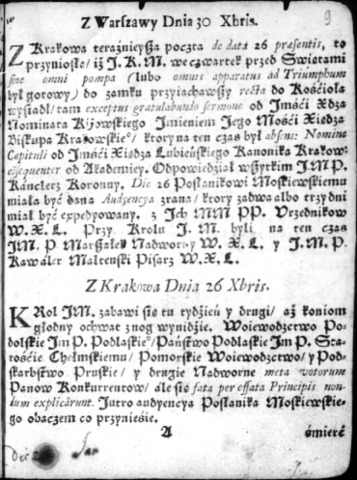 9
Z Warszawy Dnia 30 Xbris.
Z Krakowa teraźnieysza poczta de data 26 præsentis, to
przyniosła/ iż J. K. M. we czwartek przed Swietami
sine omni pompa (lubo omnis apparatus ad Triumphum
był gotowy) do zamku przyiachawszy rectà do Kośćioła
wysiadł/ tam exceptus gratulabundo sermone od Jmśći Xdza
Nominata Kijowskiego Jmieniem Jego Mośći Xiedza
Biskupa Krakowskie°/ ktory na ten czas był absens: Nomine
Capituli od Jmśći Xiedza Łubieńskiego Kanonika Krakow:
consequenter od Akademiey. Odpowiedział wszytkim J.M.P.
Kanclerz Koronny. Die 26 Posłanikowi Moskiewskiemu
miała być dana Audyencya zrana/ ktory zadwa albo trzy dni
miał być expedyowany. z Jch MM PP. Vrzednikow
W. X. L. Przy Krolu J. M. byli na ten czas
JM. P. Marszałek Nadworny W. X. L. y J. M. P.
Kawaler Maltenski Pisarz W. X. L.
Z Krakowa Dnia 26 Xbris.
KRol JM. zabawi sie tu tydźień y drugi/ aż koniom
głodny ochwat z nog wynidźie. Woiewodztwo Po-
dolskie Jm P. Podlaskie°/ Państwo Podlaskie Jm P. Sta-
rośćie Chełmskiemu/ Pomorskie Woiewodztwo/ y Pod-
skarbstwo Pruskie/ y drugie Nadworne meta votorum
Panow Konkurrentow/ ale sie fata per effata Principis non-
dum explicârunt. Jutro audyencya Posłanika Moskiewskie-
go obaczem co przynieśie.
A śmierć